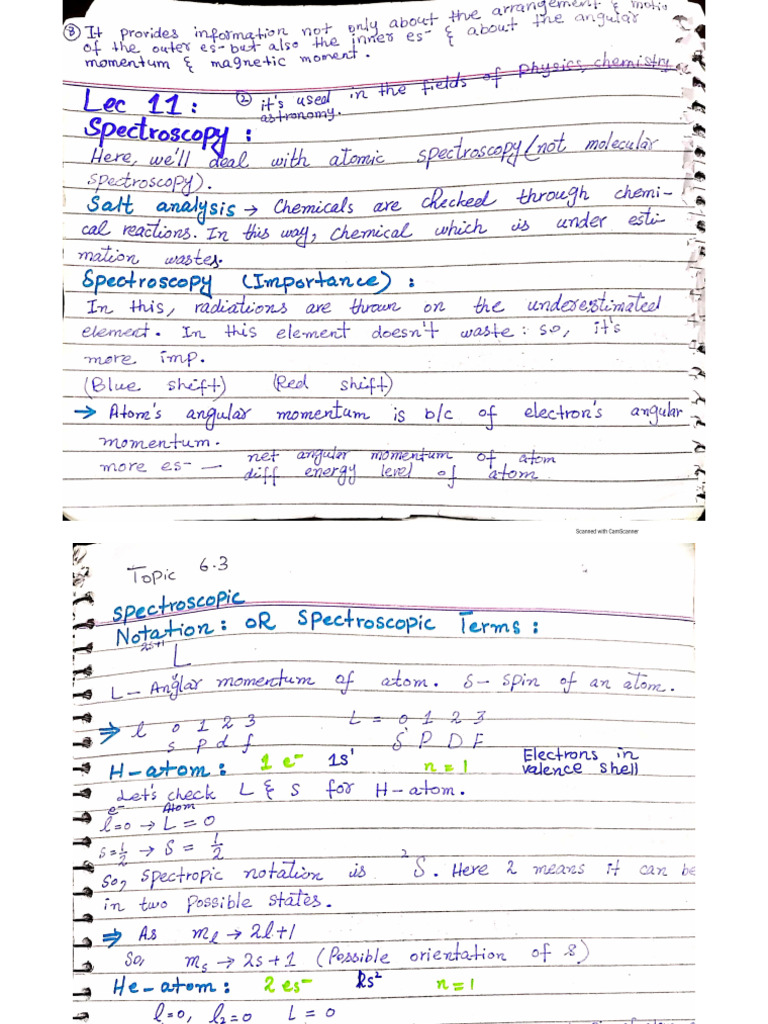 ③ It provides information not only about the arrangement & motion
of the outer es- but also the inner es- & about the angular
momentum & magnetic moment.
Lec 11: ② it's used in the fields of physics, chemistry
astronomy.
Spectroscopy:
Here, we'll deal with atomic spectroscopy (not molecular
spectroscopy).
Salt analysis → Chemicals are checked through chemi-
cal reactions. In this way, chemical which is under esti-
mation wastes.
Spectroscopy (Importance):
In this, radiations are thrown on the underestimated
element. In this element doesn't waste: so, it's
more imp.
(Blue shift) (Red shift)
→ Atom's angular momentum is b/c of electron's angular
momentum.
more es- — net angular momentum of atom
diff energy level of atom
Scanned with CamScanner
Topic 6.3
Spectroscopic
Notation: OR Spectroscopic Terms:
2s+1
L
L - Anglar momentum of atom. S - spin of an atom.
⇒ l 0 1 2 3 L = 0 1 2 3
s p d f S P D F
H-atom: 1 e- 1s¹ n=1 Electrons in
valence shell
Let's check L & S for H-atom.
e- Atom
l=0 → L=0
s=1/2 → S = 1/2
So, spectropic notation is ²S. Here 2 means it can be
in two possible states.
⇒ As m_l → 2l+1
So, m_s → 2s+1 (Possible orientation of s)
He-atom: 2 es- 1s² n=1
l₁=0, l₂=0 L=0